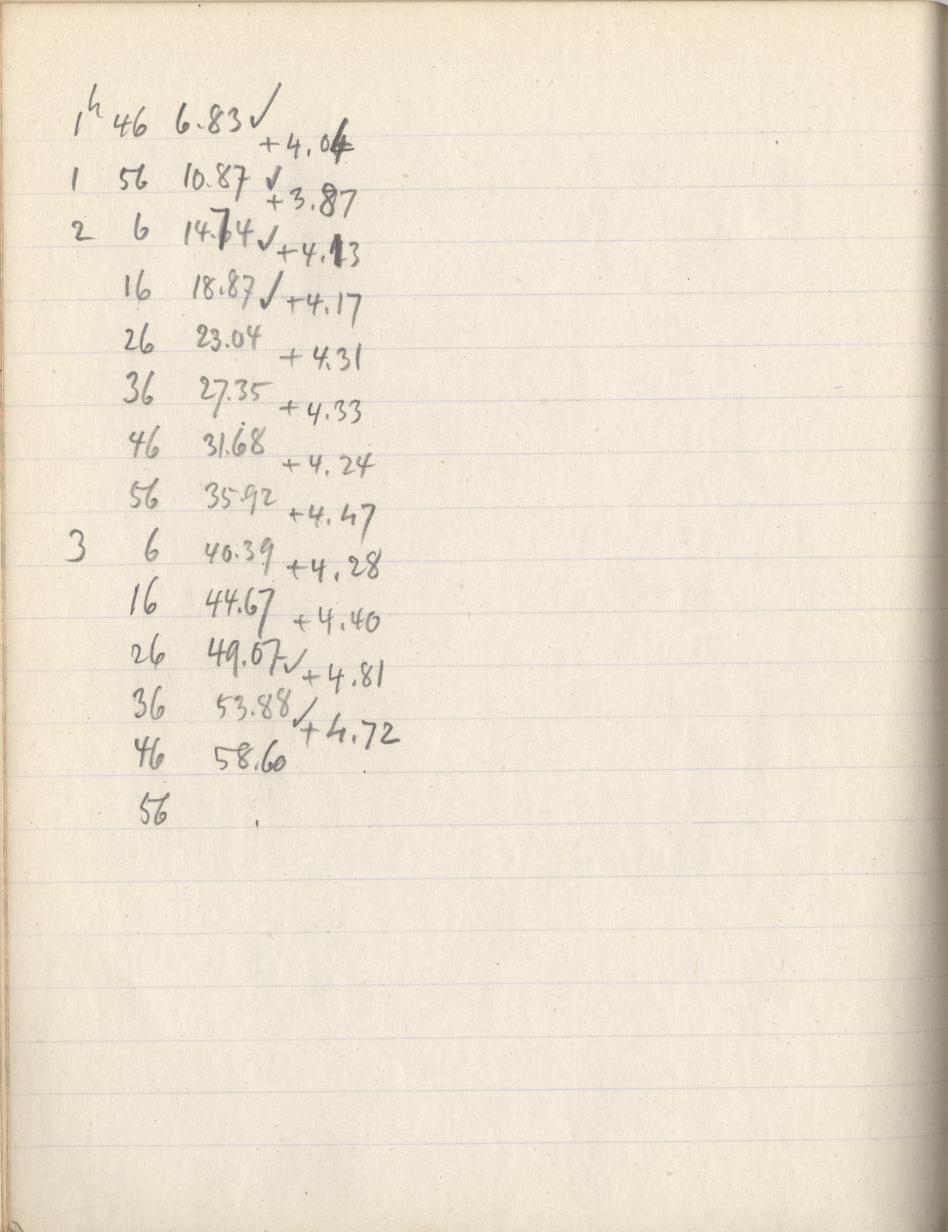 1h 46 6.83 ✓
+4.04
1 56 10.87 ✓
+3.87
2 6 14.74 ✓
+4.13
16 18.87 ✓
+4.17
26 23.04
+4.31
36 27.35
+4.33
46 31.68
+4.24
56 35.92
+4.47
3 6 40.39
+4.28
16 44.67
+4.40
26 49.07 ✓
+4.81
36 53.88 ✓
+4.72
46 58.60
56